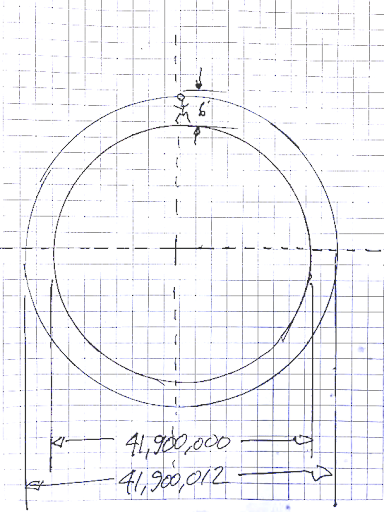 6'
41,900,000
41,900,012